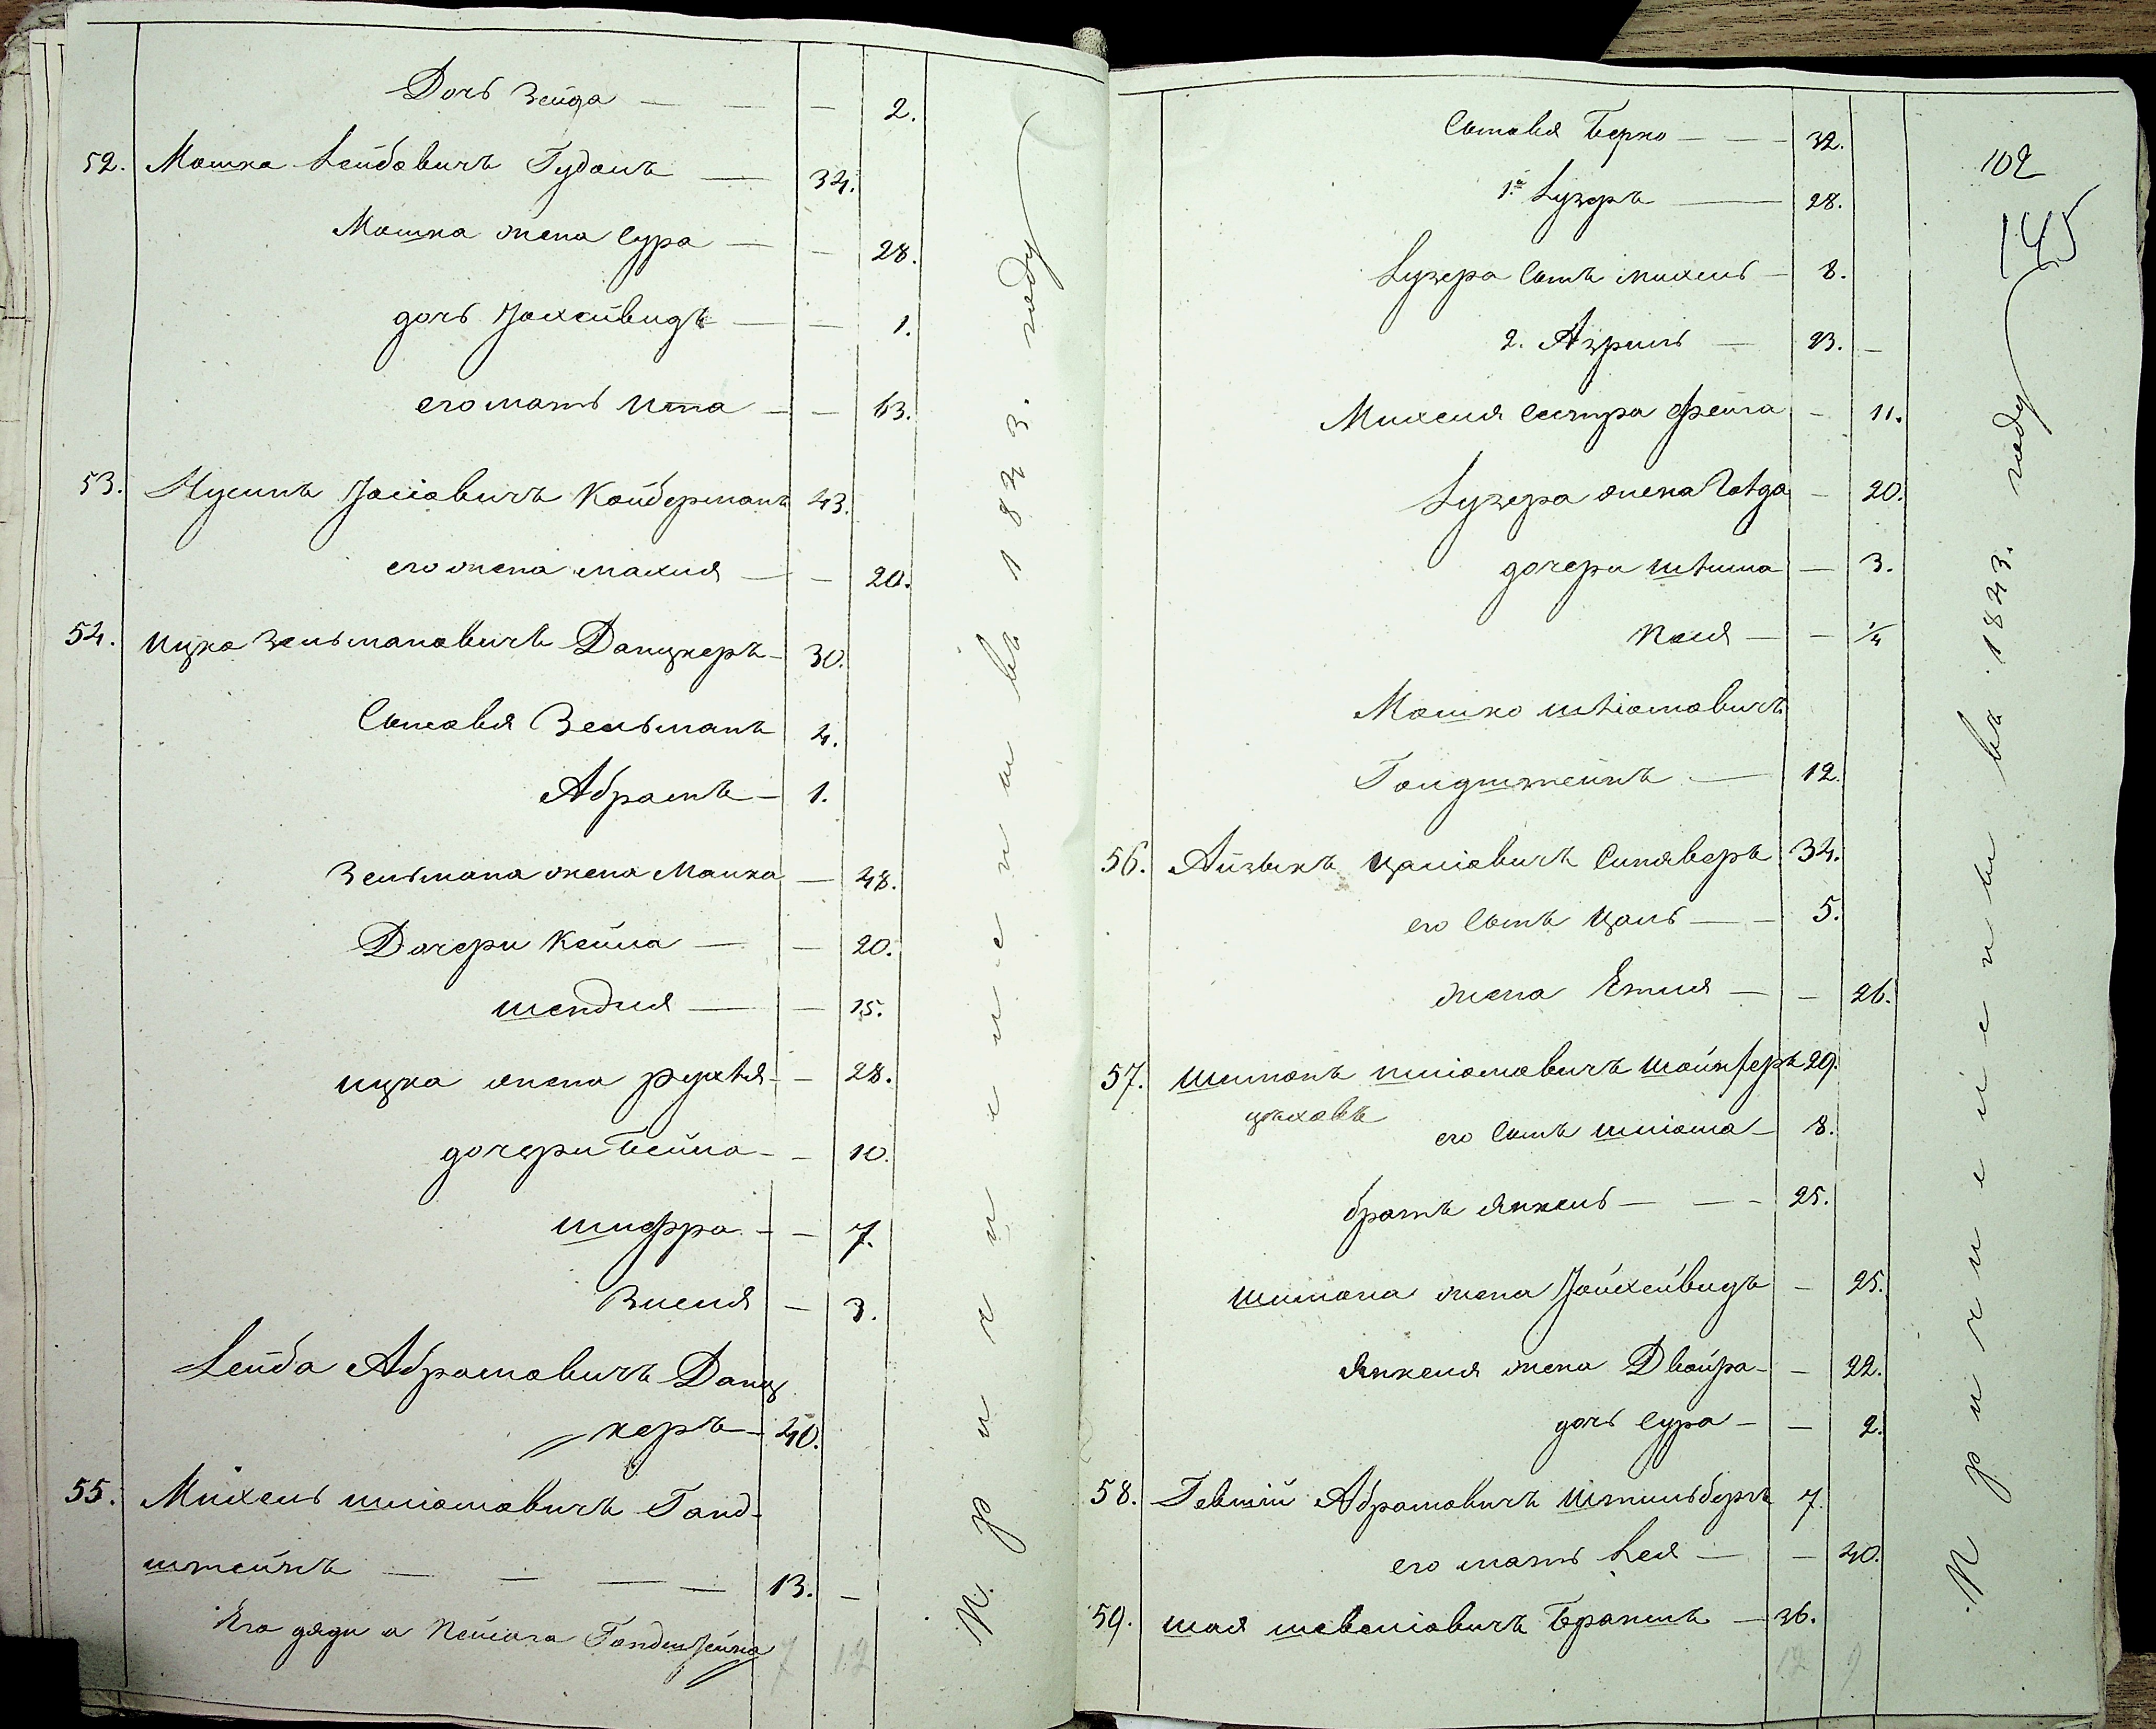 Дочь Зейда — — — 2.
52. Мошка Лейбовичъ Гудомъ — 34.
Мошка жена Сура — — 28.
дочь Йохейвидъ — — 1.
его мать Ита — — 63.
53. Нусинъ Йосіовичъ Койберманъ 43.
его жена Махля — — 20.
54. Ицко Зельмановичъ Данцкеръ — 30.
Сыновья Зельманъ 4.
Абрамъ — 1.
Зельмана жена Малка — 48.
Дочери Кейла — — 20.
Шендля — — 15.
Ицка жена Рухля — — 28.
дочери Бейла — — 10.
Шифра — — 7.
Зисля — 3.
Лейба Абрамовичъ Данц
керъ — 40.
55. Михель Шліомовичъ Голд-
штейнъ — — — — 13. —
Его дяди а Пейсаха Голдештейна 7 12
Причислены въ 1843. году
102
145
Сыновья Берко — — — 32.
1й Лузеръ — 28.
Лузера сынъ Михель — 8.
2. Азриль — 23. —
Михеля сестра Фейга — 11.
Лузера жена Голда — 20.
дочери Шѣйма — 3.
Песя — — 1/4
Мошко Шліомовичъ
Голдштейнъ — 12.
56. Айзыкъ Цаліовичъ Синяверъ 34.
его сынъ Цаль — — 5.
жена Етля — — 26.
57. Шимонъ Шліомовичъ Шойхферъ 29.
его сынъ Шліома — 8.
братъ Янкель — — — 25.
Шимона жена Йойхейвидъ — 25.
Янкеля жена Двойра — — 22.
дочь Сура — — 2.
58. Гевшій Абрамовичъ Штильбергъ 7.
его мать Лея — — 40.
59. Шая Шевеліовичъ Брамшъ — 36.
12 9
Причислены въ 1843. году